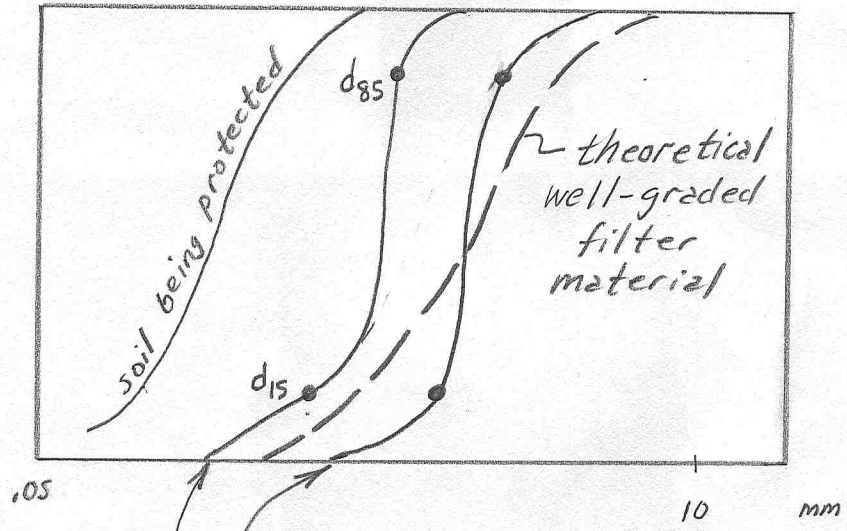 soil being protected
d85
d15
theoretical
well-graded
filter
material
.05
10
mm